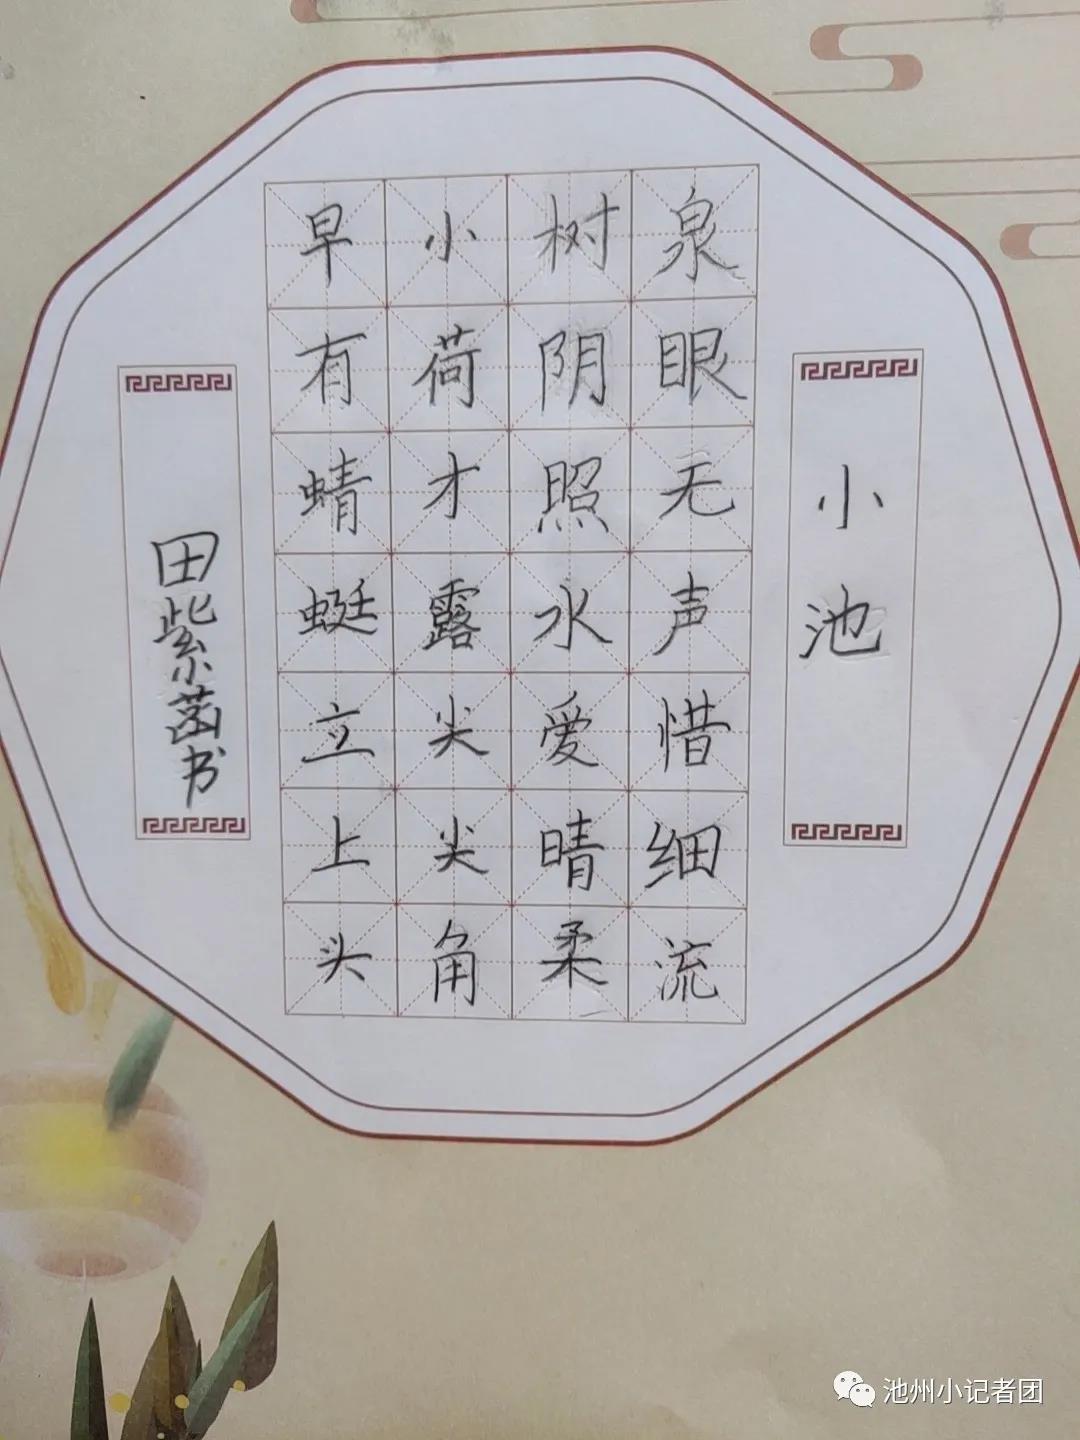 小池
泉眼无声惜细流
树阴照水爱晴柔
小荷才露尖尖角
早有蜻蜓立上头
田紫菡书
池州小记者团